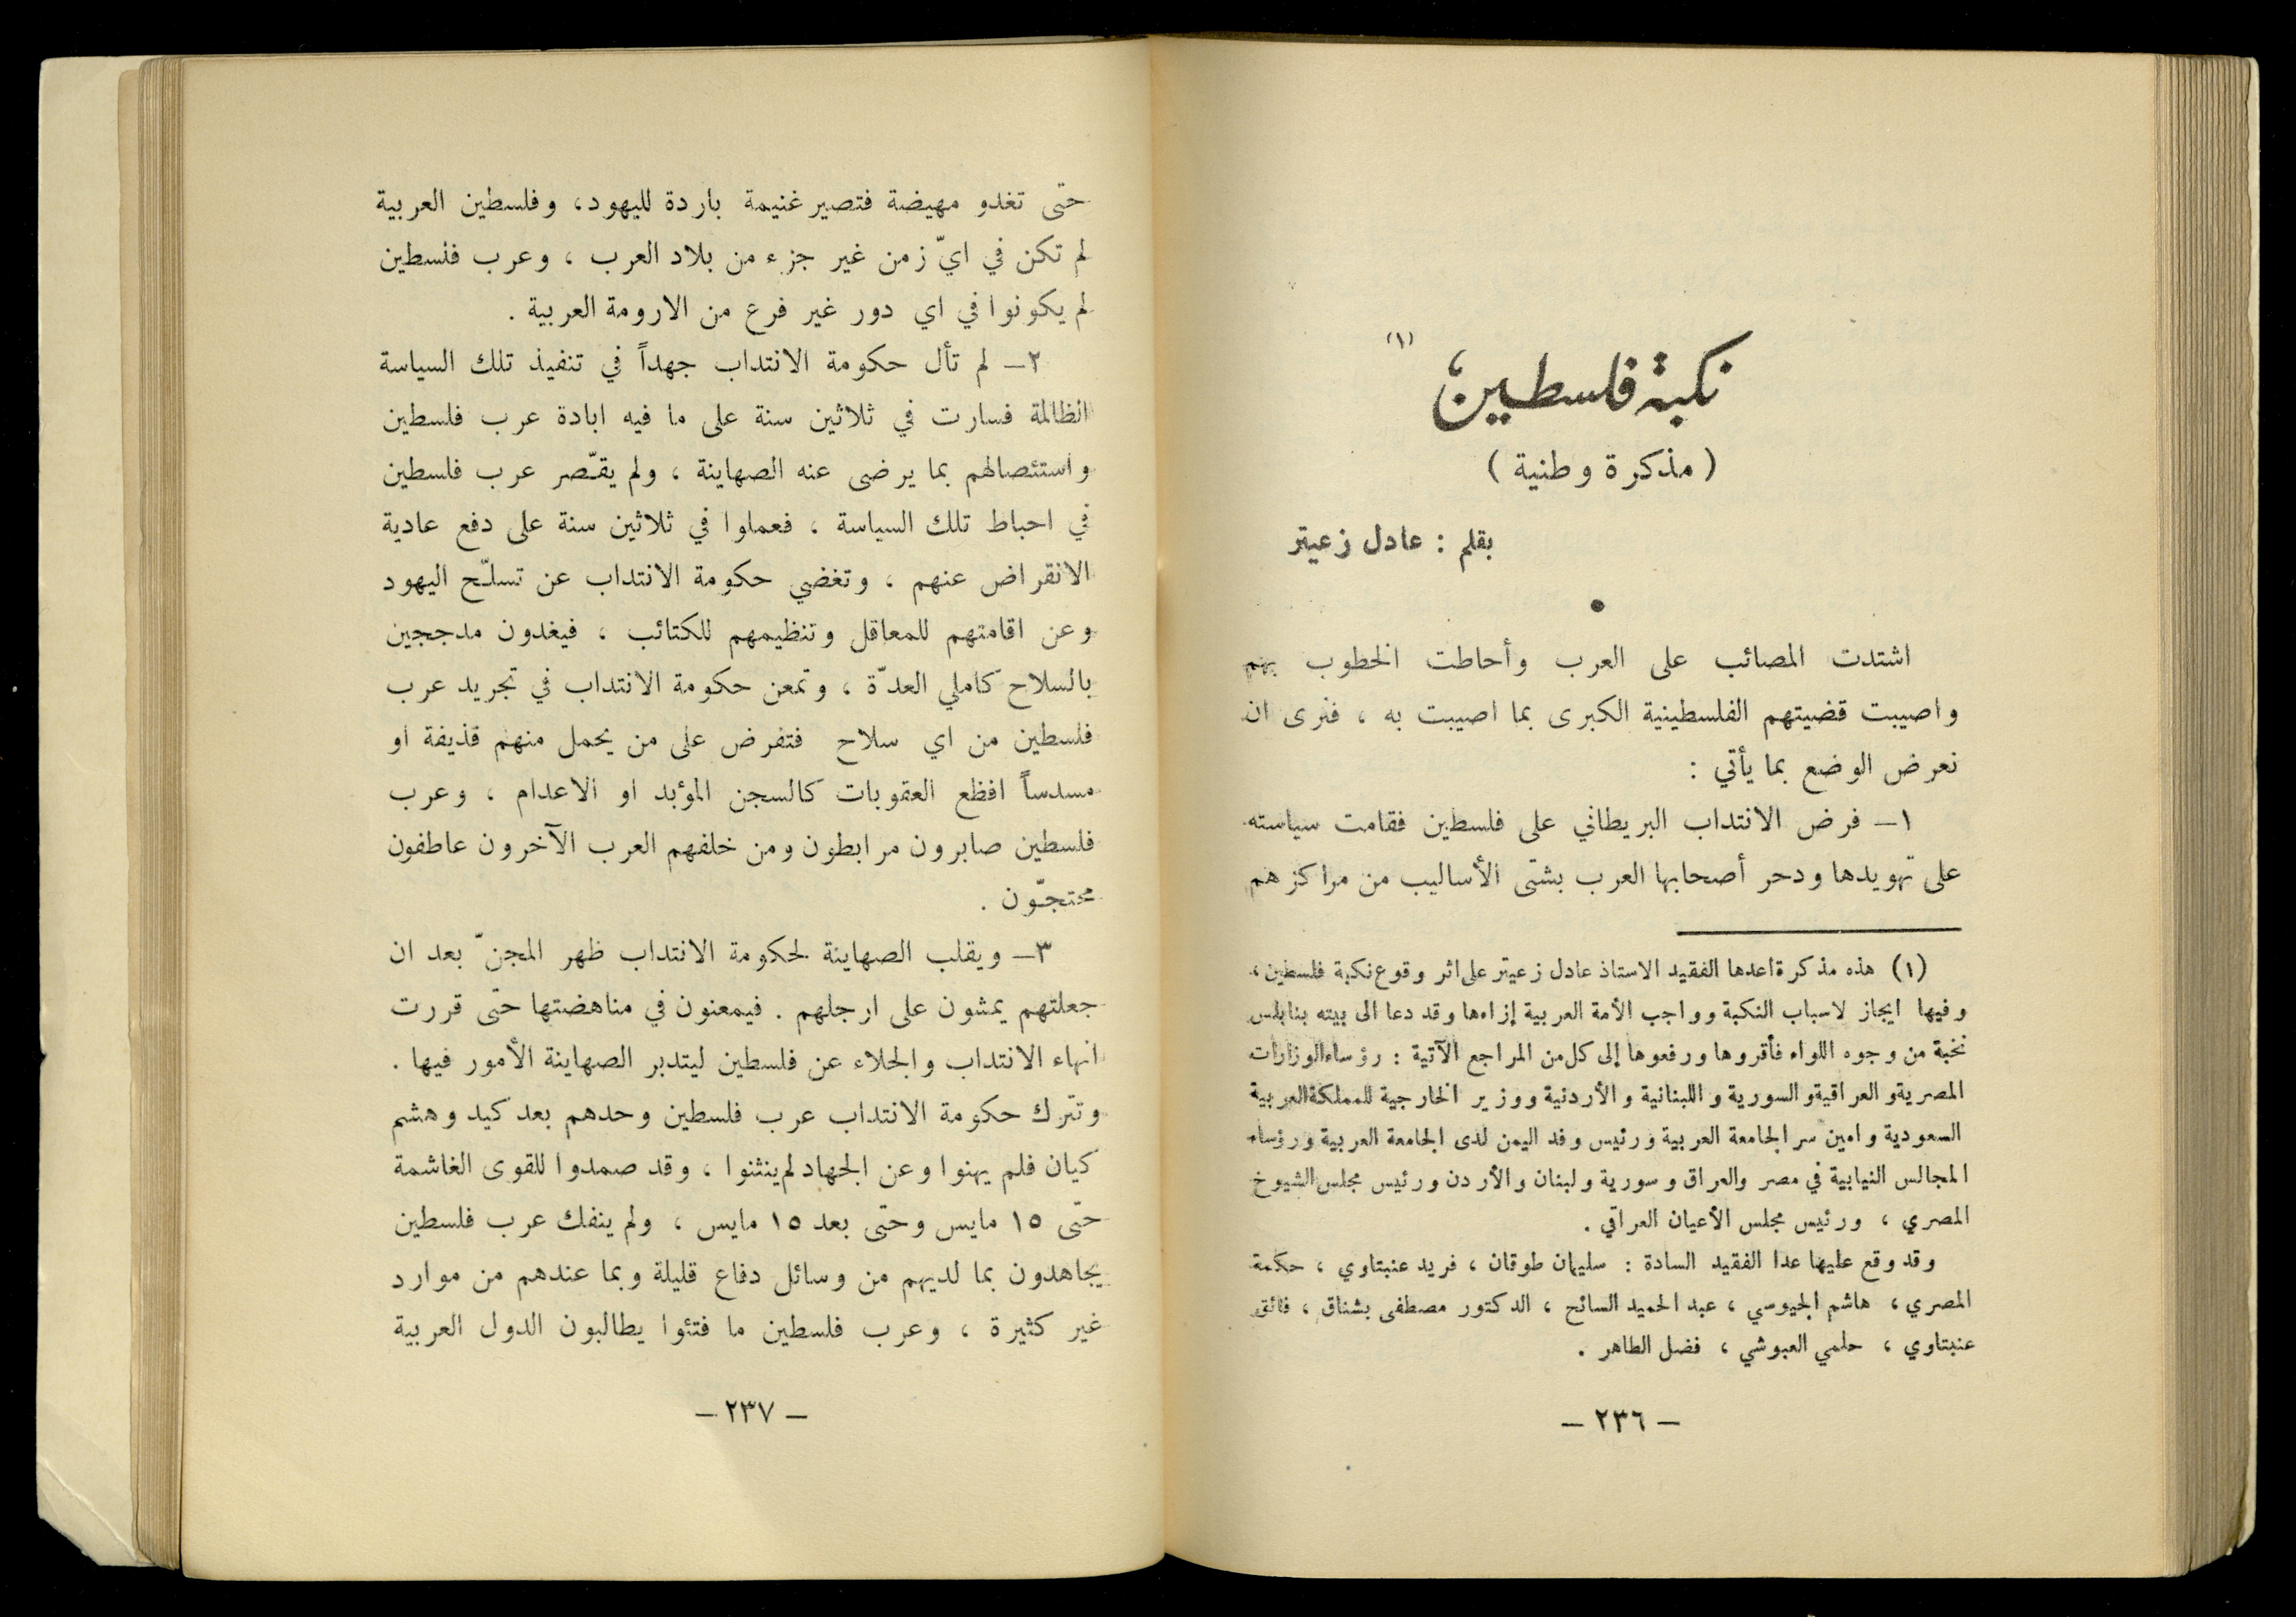 نكبة فلسطين (١)
( مذكرة وطنية )
بقلم : عادل زعيتر
اشتدت المصائب على العرب وأحاطت الخطوب بهم
واصيبت قضيتهم الفلسطينية الكبرى بما اصيبت به ، فنرى ان
نعرض الوضع بما يأتي :
١ – فرض الانتداب البريطاني على فلسطين فقامت سياسته
على تهويدها ودحر أصحابها العرب بشتى الأساليب من مراكزهم
(١) هذه مذكرة اعدها الفقيد الاستاذ عادل زعيتر على اثر وقوع نكبة فلسطين ،
وفيها ايجاز لاسباب النكبة وواجب الأمة العربية إزاءها وقد دعا الى بيته بنابلس
نخبة من وجوه اللواء فأقروها ورفعوها إلى كل من المراجع الآتية : رؤساء الوزارات
المصرية والعراقية والسورية واللبنانية والأردنية ووزير الخارجية للمملكة العربية
السعودية وامين سر الجامعة العربية ورئيس وفد اليمن لدى الجامعة العربية ورؤساء
المجالس النيابية في مصر والعراق وسورية ولبنان والأردن ورئيس مجلس الشيوخ
المصري ، ورئيس مجلس الأعيان العراقي .
وقد وقع عليها عدا الفقيد السادة : سليمان طوقان ، فريد عنبتاوي ، حكمة
المصري ، هاشم الجيوسي ، عبد الحميد السائح ، الدكتور مصطفى بشناق ، فائق
عنبتاوي ، حلمي العبوشي ، فضل الطاهر .
– ٢٣٦ –
حتى تغدو مهيضة فتصير غنيمة باردة لليهود ، وفلسطين العربية
لم تكن في ايّ زمن غير جزء من بلاد العرب ، وعرب فلسطين
لم يكونوا في اي دور غير فرع من الارومة العربية .
٢ – لم تأل حكومة الانتداب جهداً في تنفيذ تلك السياسة
الظالمة فسارت في ثلاثين سنة على ما فيه ابادة عرب فلسطين
واستئصالهم بما يرضى عنه الصهاينة ، ولم يقصّر عرب فلسطين
في احباط تلك السياسة ، فعملوا في ثلاثين سنة على دفع عادية
الانقراض عنهم ، وتغضي حكومة الانتداب عن تسلّح اليهود
وعن اقامتهم للمعاقل وتنظيمهم للكتائب ، فيغدون مدججين
بالسلاح كاملي العدّة ، وتمعن حكومة الانتداب في تجريد عرب
فلسطين من اي سلاح فتفرض على من يحمل منهم قذيفة او
مسدساً افظع العقوبات كالسجن المؤبد او الاعدام ، وعرب
فلسطين صابرون مرابطون ومن خلفهم العرب الآخرون عاطفون
محتجّون .
٣ – ويقلب الصهاينة لحكومة الانتداب ظهر المجنّ بعد ان
جعلتهم يمشون على ارجلهم . فيمعنون في مناهضتها حتى قررت
انهاء الانتداب والجلاء عن فلسطين ليتدبر الصهاينة الأمور فيها .
وتترك حكومة الانتداب عرب فلسطين وحدهم بعد كيد وهشم
كيان فلم يهنوا وعن الجهاد لم ينثنوا ، وقد صمدوا للقوى الغاشمة
حتّى ١٥ مايس وحتى بعد ١٥ مايس ، ولم ينفك عرب فلسطين
يجاهدون بما لديهم من وسائل دفاع قليلة وبما عندهم من موارد
غير كثيرة ، وعرب فلسطين ما فتئوا يطالبون الدول العربية
– ٢٣٧ –